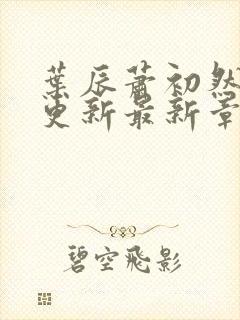 葉辰蕭初然
更新最新章
碧空飛影